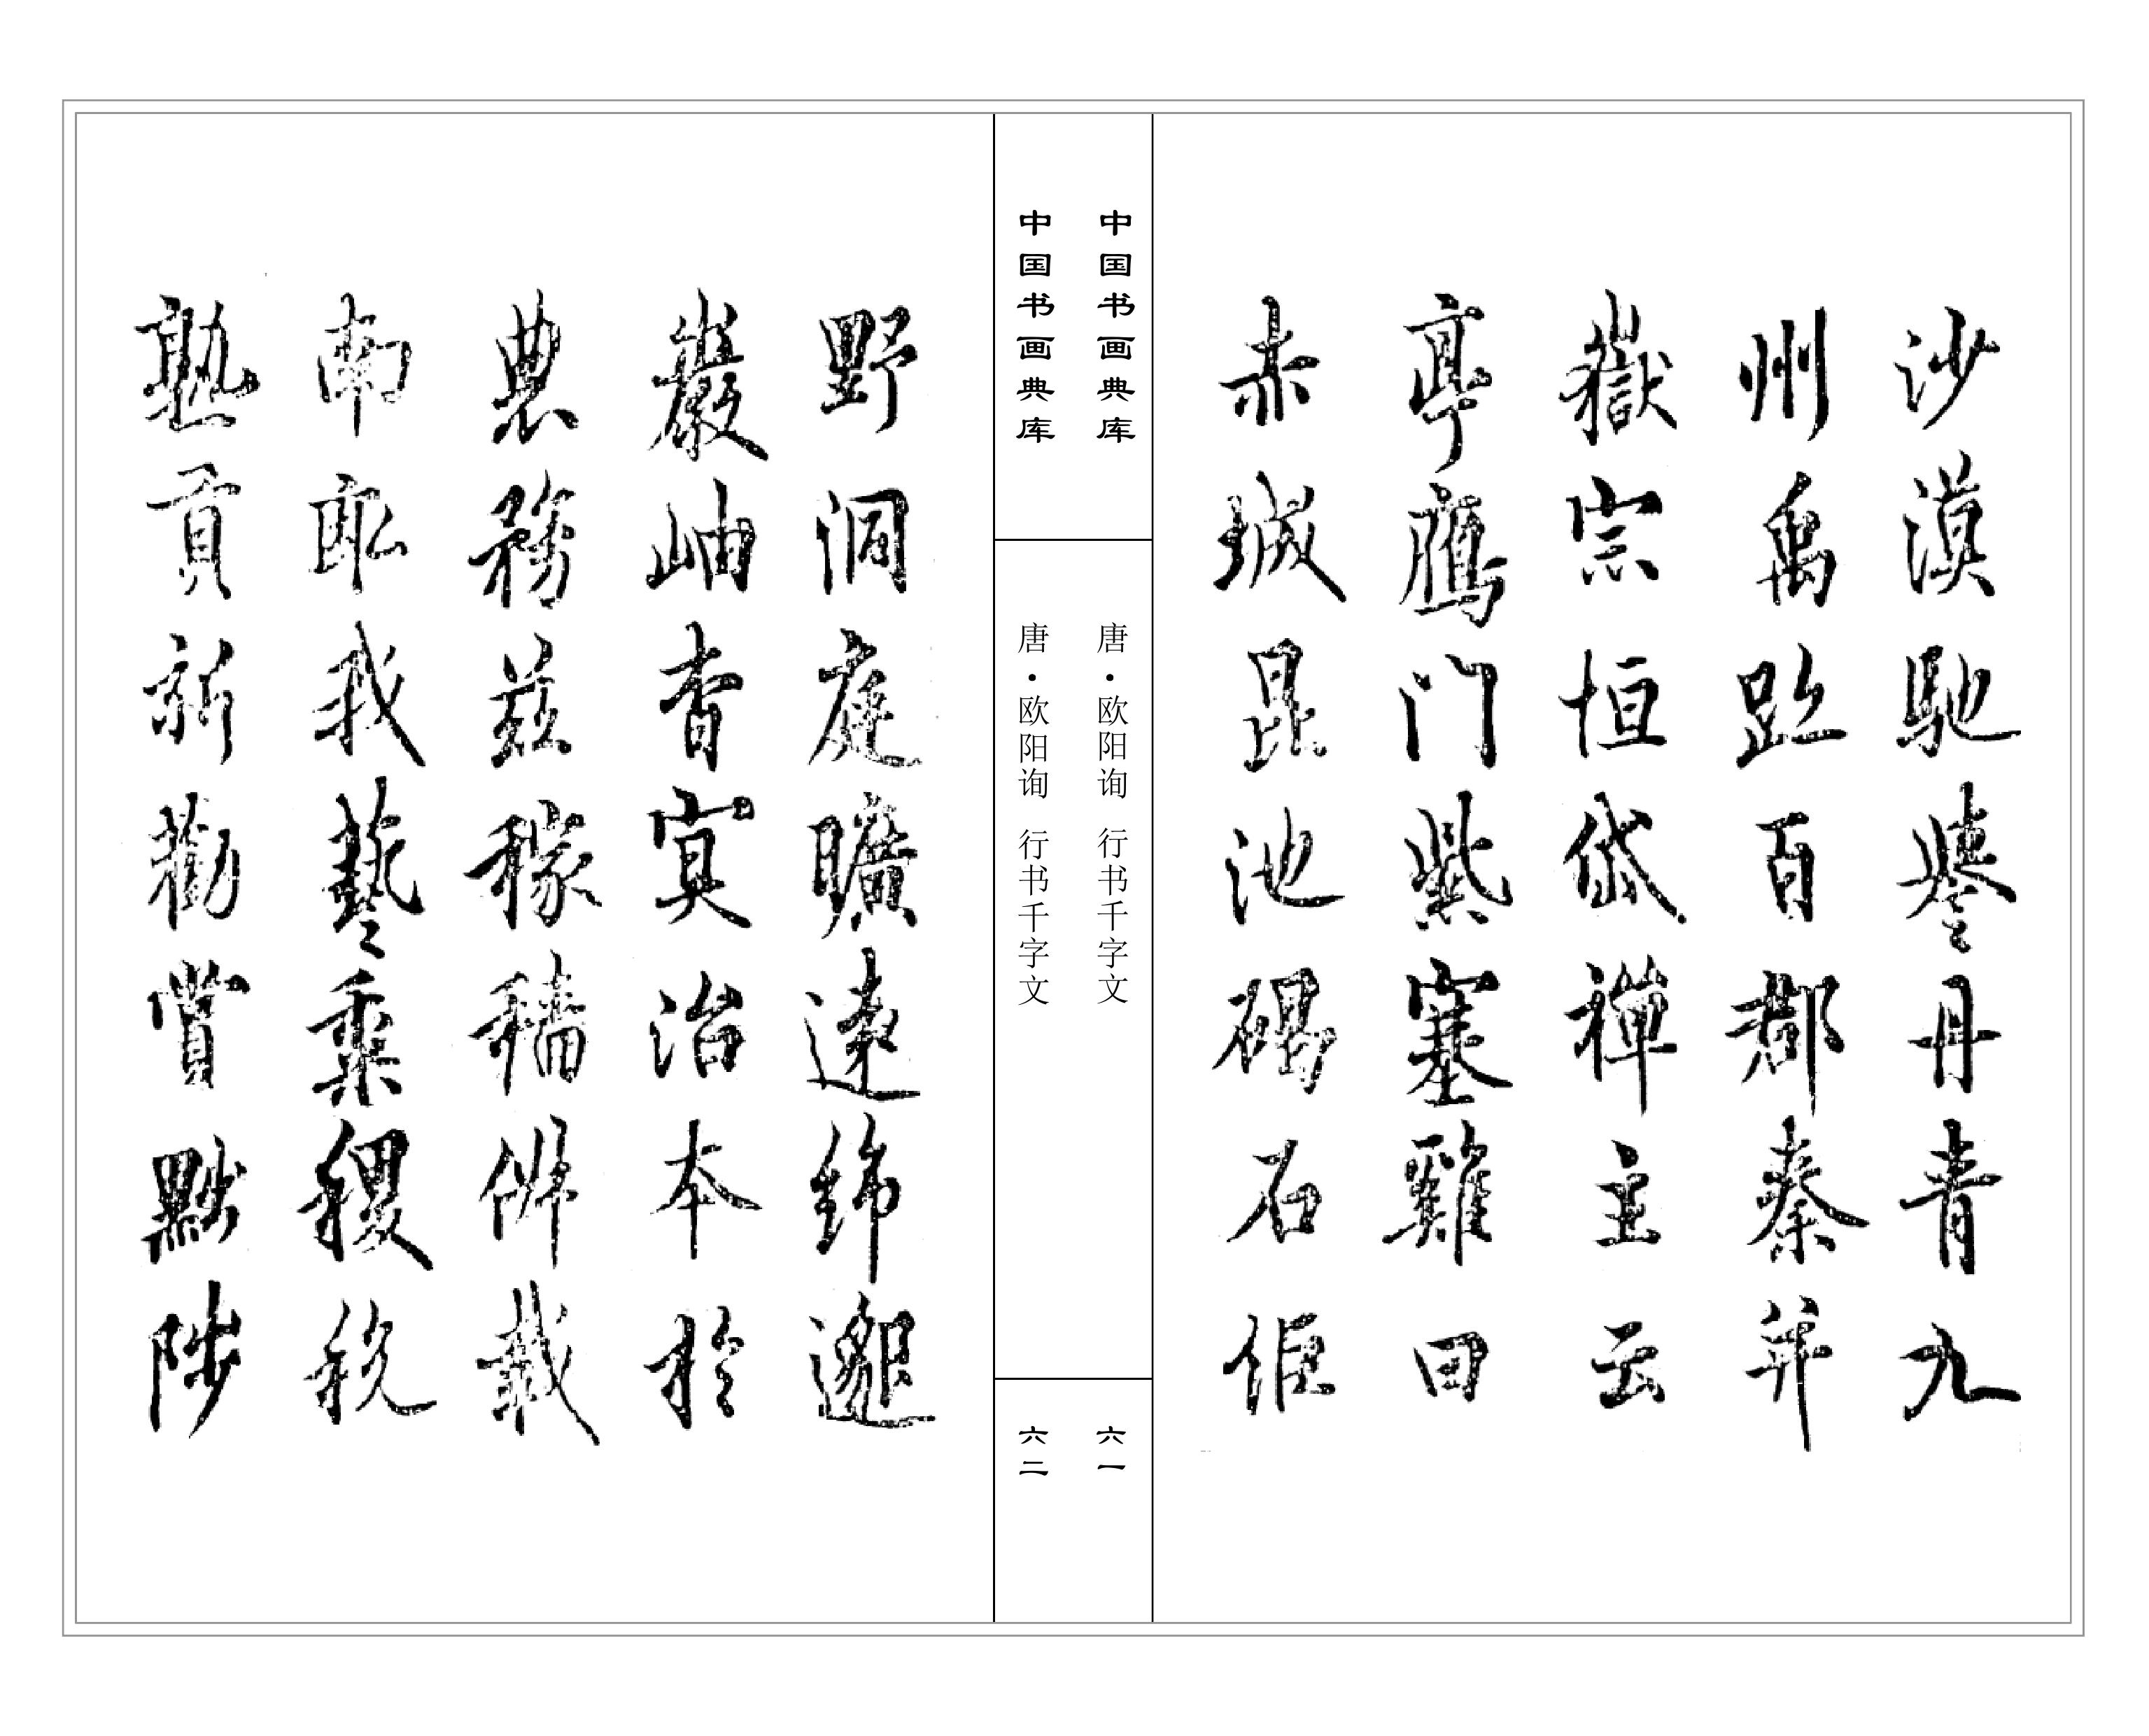 沙漠馳譽丹青九
州禹跡百郡秦并
嶽宗恒岱禪主云
亭鴈門紫塞雞田
赤城昆池碣石鉅
中国书画典库
唐·欧阳询 行书千字文
六一
中国书画典库
唐·欧阳询 行书千字文
六二
野洞庭曠遠綿邈
巖岫杳冥治本於
農務茲稼穡俶載
南畝我藝黍稷稅
熟貢新勸賞黜陟